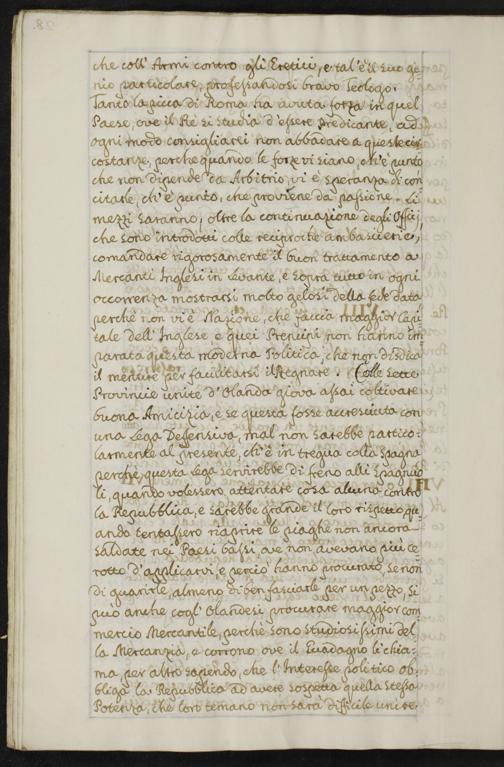 28.
che coll' Armi contro gli Eretici, e tal'è il suo ge-
nio particolare, professandosi bravo Teologo.
Tanto la picca di Roma ha avuta forza in quel
Paese, ove il Rè si studia d'essere predicante, ad
ogni modo consigliarei non abbadare a queste cir-
costanze, perche quando le forze vi siano, ch'è punto
che non dipende da Arbitrio, vi è speranza di con
citarle, ch'è punto, che proviene da passione. Li
mezzi saranno, oltre la continuazione degli Offici,
che sono introdotti colle reciproche ambascierie,
comandare rigorosamente il buon trattamento a
Mercanti Inglesi in Levante, e sopra tutto in ogni
occorrenza mostrarsi molto gelosi della fede data
perchè non vi è Nazione, che faccia maggior Capi-
tale dell'Inglese, e quei Prencipi non hanno im-
parata questa moderna Politica, che non disdica
il mentire per facilitarsi il Regnare. Colle sette
Provincie unite d'Olanda giova assai coltivare
buona Amicizia, e se questa fosse accresciuta con
una Lega Deffensiva, mal non sarebbe partico-
larmente al presente, ch'è in tregua colla Spagna
perchè questa Lega servirebbe di freno alli Spagnuo
li, quando volessero attentare cosa alcuna contro
la Repubblica, e sarebbe grande il loro rispetto qu-
ando tentassero riaprire le piaghe non ancora
saldate nei Paesi bassi, ove non avevano più ce-
rotto d'applicarvi, e perciò hanno procurato, se non
di guarirle, almeno di ben fasciarle per un pezzo. Si
può anche cogl'Olandesi procurare maggior com
mercio Mercantile, perchè sono studiosissimi del-
la Mercanzia, e corrono ove il Guadagno li chia-
ma per altro sapendo, che l'Interesse politico ob-
bliga la Repubblica ad avere sospetta quella stessa
Potenza, che loro temano non sarà difficile unire